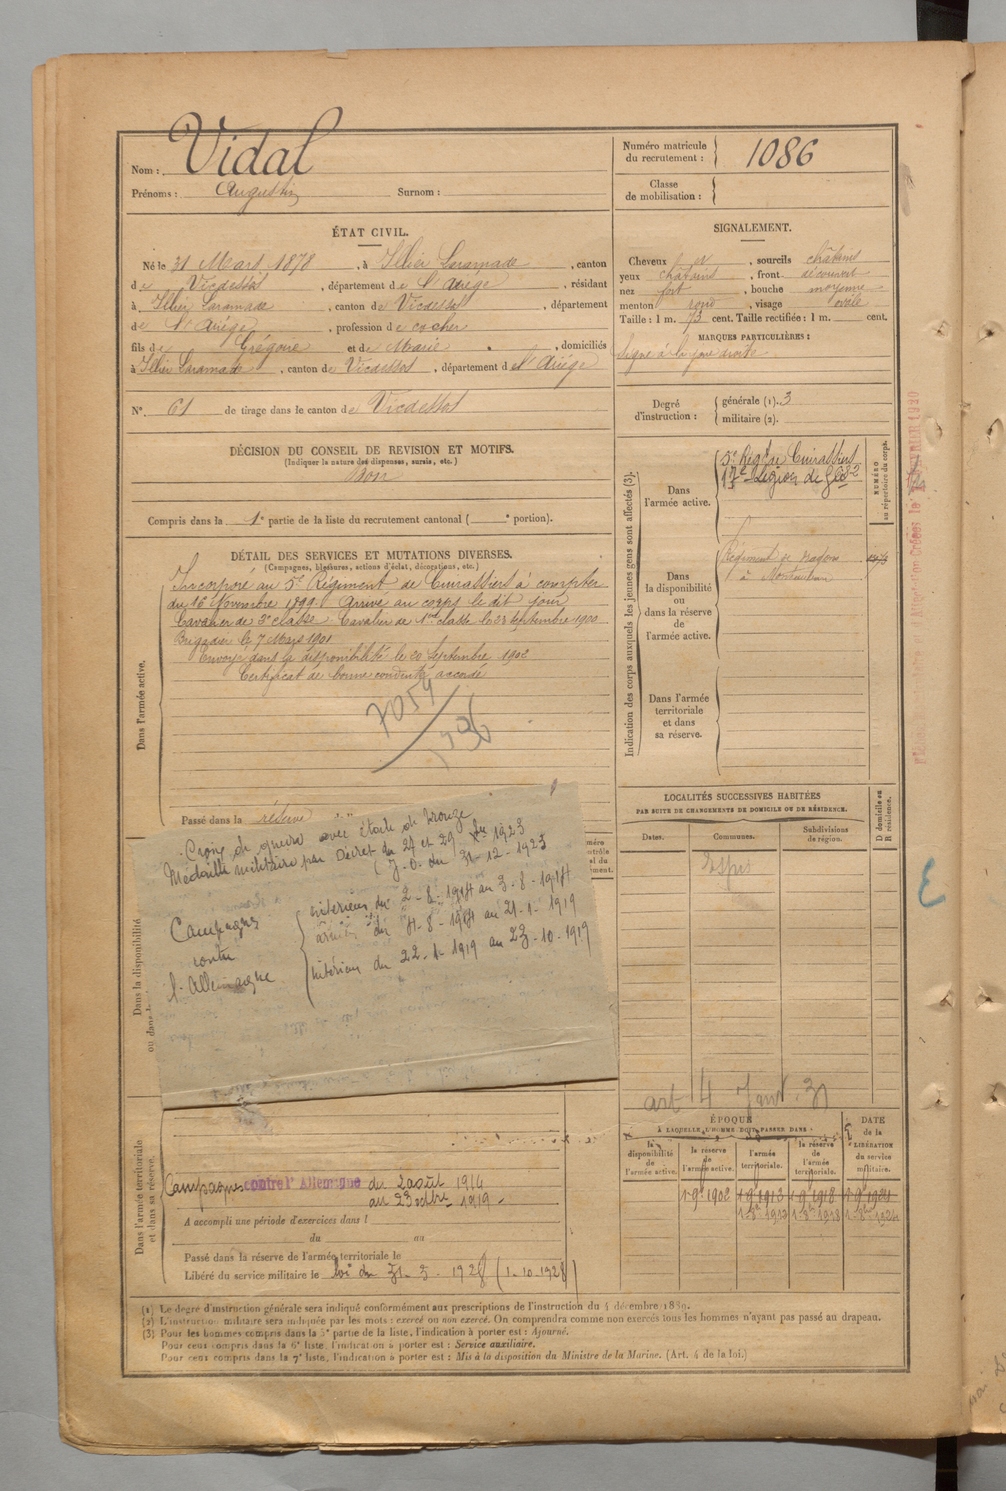 Nom : Vidal
Prénoms : Augustin Surnom :
Numéro matricule du recrutement : 1086
Classe de mobilisation :
ÉTAT CIVIL.
Né le 31 Mars 1878, à Illier Laramade, canton
de Vicdessos, département de l'Ariège, résidant
à Illier Laramade, canton de Vicdessos, département
de l'Ariège, profession de cocher
fils de Grégoire et de Marie, domiciliés
à Illier Laramade, canton de Vicdessos, département de l'Ariége
N° 61 de tirage dans le canton de Vicdessos
SIGNALEMENT.
Cheveux et, sourcils châtains
yeux châtains, front découvert
nez fort, bouche moyenne
menton rond, visage ovale
Taille : 1 m. 73 cent. Taille rectifiée : 1 m. cent.
MARQUES PARTICULIÈRES :
Signe à la joue droite
Degré d'instruction : générale (1). 3
militaire (2).
DÉCISION DU CONSEIL DE REVISION ET MOTIFS.
(Indiquer la nature des dispenses, sursis, etc.)
Bon
Compris dans la 1e partie de la liste du recrutement cantonal ( e portion).
DÉTAIL DES SERVICES ET MUTATIONS DIVERSES.
(Campagnes, blessures, actions d'éclat, décorations, etc.)
Dans l'armée active.
Incorporé au 5e Régiment de Cuirassiers à compter
du 16 Novembre 1899. Arrivé au corps le dit jour
Cavalier de 2e classe. Cavalier de 1re classe le 23 septembre 1900
Brigadier le 7 Mars 1901
Envoyé dans la disponibilité le 20 Septembre 1902
Certificat de bonne conduite accordé
7054
Passé dans la réserve
Croix de guerre avec étoile de bronze
Médaille militaire par Décret du 27 et 29 1923
(J.O. du 31-12-1923
Campagnes
contre
l'Allemagne
intérieur du 2-8-1914 au 3-8-1914
armées du 4-8-1914 au 21-1-1919
intérieur du 22-1-1919 au 23-10-1919
Dans la disponibilité
ou dans
Dans l'armée territoriale et dans sa réserve.
Campagnes contre l'Allemagne du 2 août 1914
au 23 octbre 1919
A accompli une période d'exercices dans l
du au
Passé dans la réserve de l'armée territoriale le
Libéré du service militaire le loi du 31-3-1928 (1-10-1928)
Indication des corps auxquels les jeunes gens sont affectés (3).
NUMÉRO au répertoire du corps.
Dans l'armée active.
5e Régt de Cuirassiers
17e Légion de
Dans la disponibilité ou dans la réserve de l'armée active.
Régiment de dragons
à Montauban
Dans l'armée territoriale et dans sa réserve.
LOCALITÉS SUCCESSIVES HABITÉES
PAR SUITE DE CHANGEMENTS DE DOMICILE OU DE RÉSIDENCE.
Dates. Communes. Subdivisions de région. D domicile ou R résidence.
art 4
ÉPOQUE
À LAQUELLE L'HOMME DOIT PASSER DANS :
DATE de la LIBÉRATION du service militaire.
la disponibilité de l'armée active.
la réserve de l'armée active.
l'armée territoriale.
la réserve de l'armée territoriale.
1-9bre 1902 1-9 1913 1-9 1918 1-9 1924
(1) Le degré d'instruction générale sera indiqué conformément aux prescriptions de l'instruction du 4 décembre 1889.
(2) L'instruction militaire sera indiquée par les mots : exercé ou non exercé. On comprendra comme non exercés tous les hommes n'ayant pas passé au drapeau.
(3) Pour les hommes compris dans la 5e partie de la liste, l'indication à porter est : Ajourné.
Pour ceux compris dans la 6e liste, l'indication à porter est : Service auxiliaire.
Pour ceux compris dans la 7e liste, l'indication à porter est : Mis à la disposition du Ministre de la Marine. (Art. 4 de la loi.)